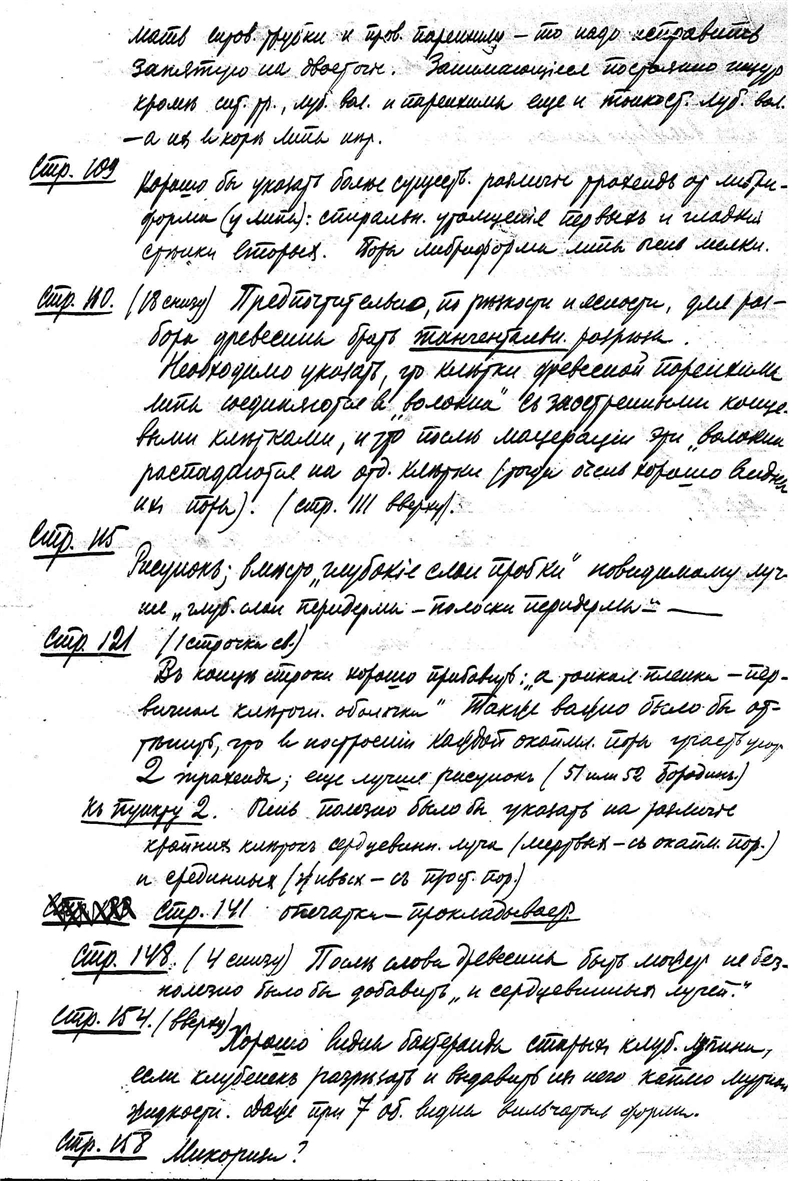 мать ситов. трубки и пров. паренхиму — то надо исправить
запятую на двоеточе. Занимающіеся постоянно ищут
кромѣ сит. тр., луб. вол. и паренхимы еще и тонкост. луб. вол.
— а их в корѣ липы нѣт.
Стр. 109 Хорошо бы указать болѣе существ. различіе трахеидъ от либри-
форма (у липы): спиральн. утолщенія первыхъ и гладкія
стѣнки вторых. Поры либриформа липы очень мелки.
Стр. 110. (18 снизу) Предпочтительно, по рѣзкости и ясности, для раз-
бора древесины брать тангентальн. разрѣзы.
Необходимо указать, что клѣтки древесной паренхимы
липы соединяются в „волокна“ съ заостренными конце-
выми клѣтками, и что послѣ мацераціи эти „волокна
распадаются на отд. клѣтки (тогда очень хорошо видны
их поры). (стр. 111 вверху).
Стр. 115
Рисунокъ; вмѣсто „глубокіе слои пробки“ повидимому луч-
ше „глуб. слои перидермы — полоски перидермы“ —
Стр. 121 (1 строчка св.)
Въ концѣ строки хорошо прибавить: „а тонкая пленка — пер-
вичная клѣточн. оболочка“ Также важно было бы от-
тѣнить, что в построеніи каждой окаймл. поры участвуют
2 трахеиды; еще лучше рисунокъ (51 или 52 Бородинъ.)
Къ пункту 2. Очень полезно было бы указать на различіе
крайних клѣтокъ сердцевинн. луча (мертвых — съ окайм. пор.)
и срединных (живых — съ прост. пор.)
Стр. 141 опечатка — прокладывает.
Стр. 148. (4 снизу) Послѣ слова древесины быть может не без-
полезно было бы добавить „и сердцевинных лучей.“
Стр. 154. (вверху)
Хорошо видны бактероиды старых клуб. лупина,
если клубенекъ разрѣзать и выдавить из него каплю мутной
жидкости. Даже при 7 об. видны вильчатыя формы.
Стр. 158 Микориза?